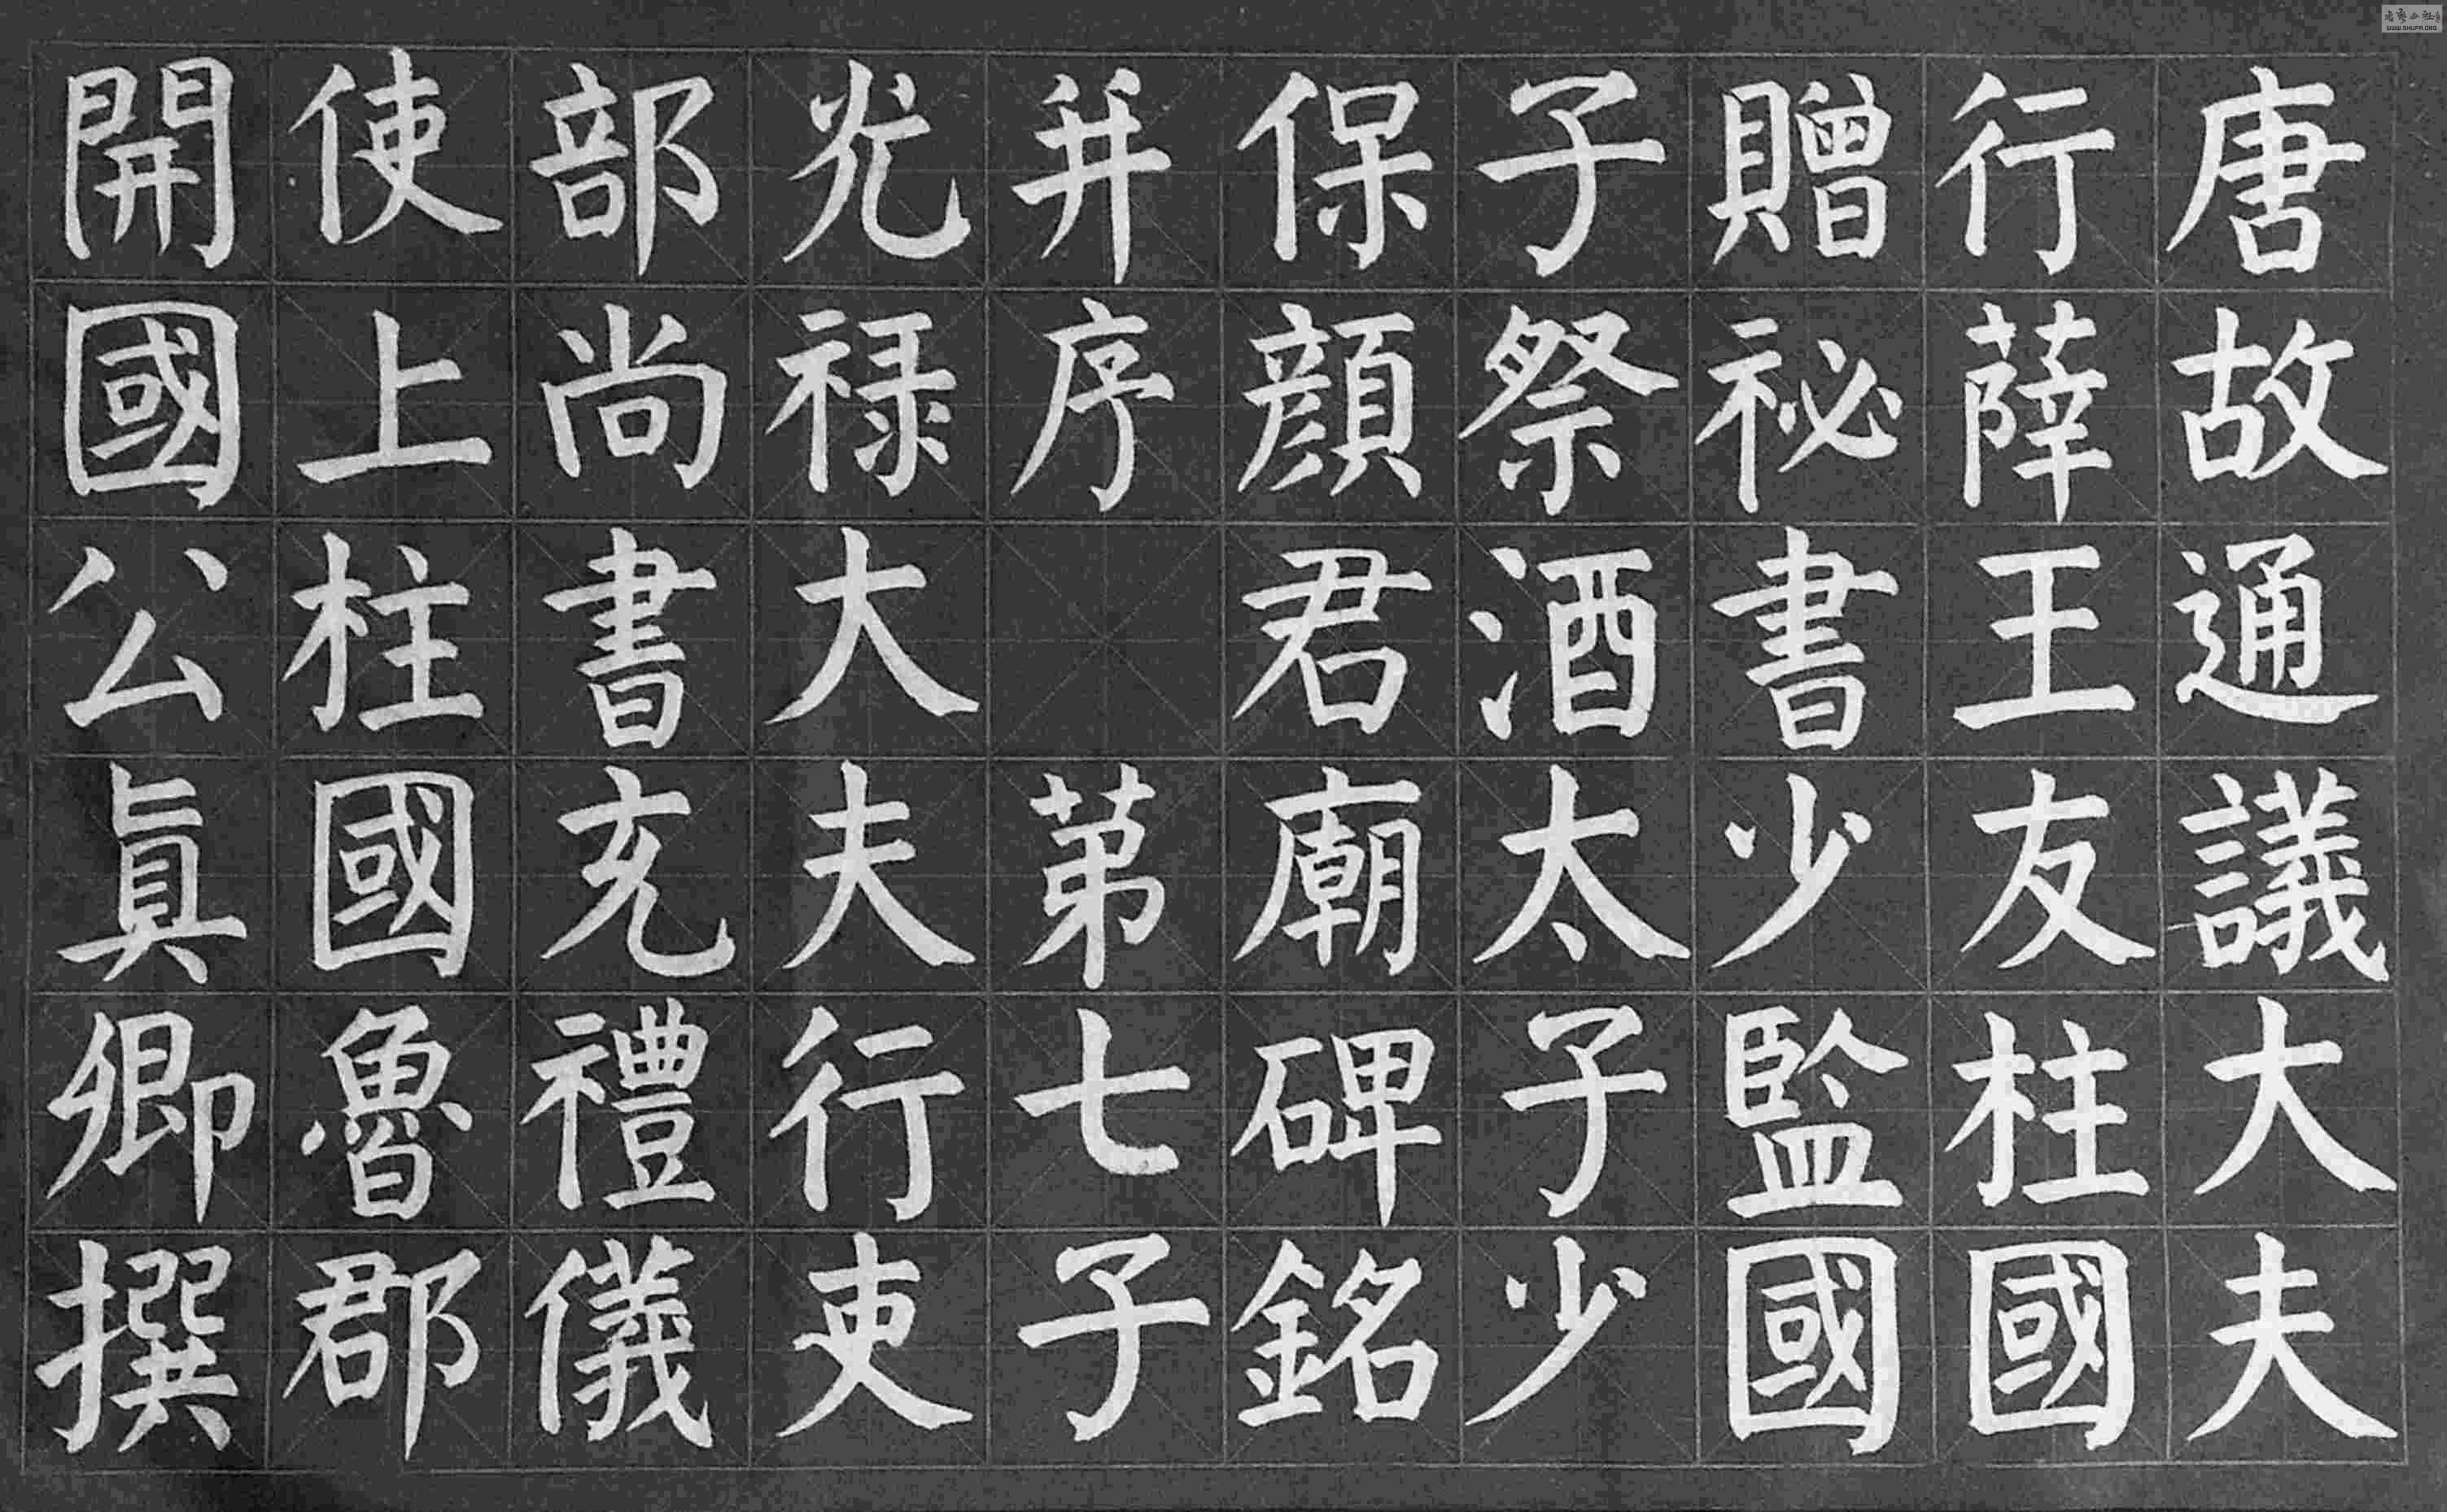 唐故通議大夫
行薛王友柱國
贈祕書少監國
子祭酒太子少
保顏君廟碑銘
并序 苐七子
光禄大夫行吏
部尚書充禮儀
使上柱國魯郡
開國公眞卿撰
WWW.SHUFA.ORG